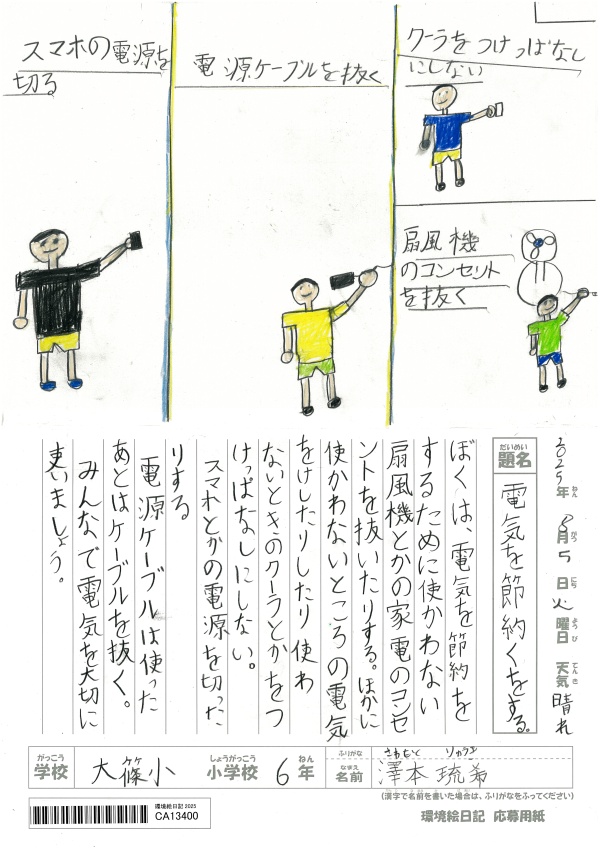 スマホの電源を
切る
電源ケーブルを抜く
クーラをつけっぱなし
にしない
扇風機
のコンセット
を抜く
2025年8月5日火曜日 天気 晴れ
ねん がつ にち ようび てんき
だいめい
題名
電気を節約くをする。
ぼくは、電気を節約を
するために使かわない
扇風機とかの家電のコンセ
ントを抜いたりする。ほかに
使かわないところの電気
をけしたりしたり使わ
ないときのクーラとかをつ
けっぱなしにしない。
スマホとかの電源を切った
りする
電源ケーブルは使った
あとはケーブルを抜く。
みんなで電気を大切に
使いましょう。
がっこう
学校
大篠小
しょうがっこう
小学校
6
ねん
年
ふりがな
さわもと りゅうき
なまえ
名前
澤本 琉希
(漢字で名前を書いた場合は、ふりがなをふってください)
環境絵日記 2025
CA13400
環境絵日記 応募用紙